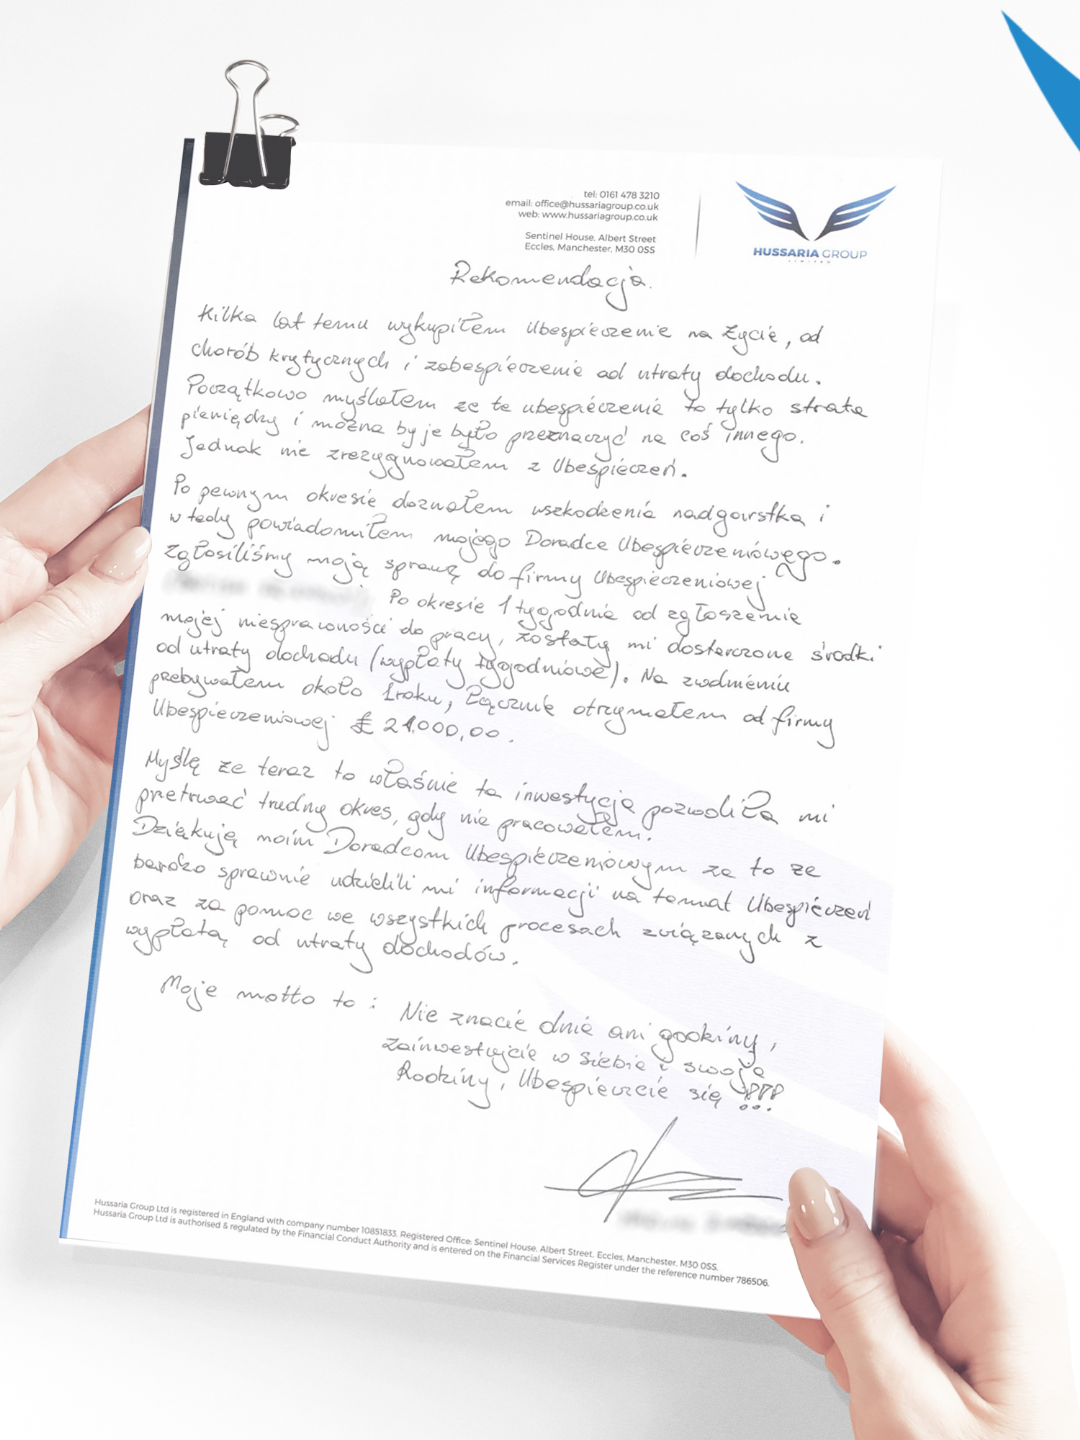 tel: 0161 478 3210
email: office@hussariagroup.co.uk
web: www.hussariagroup.co.uk
Sentinel House, Albert Street
Eccles, Manchester, M30 0SS
HUSSARIA GROUP
LIMITED
Rekomendacja.
Kilka lat temu wykupiłem Ubespieczenie na życie, od
chorób krytycznych i zabespieczenie od utraty dochodu.
Początkowo myślałem że te ubespieczenie to tylko strata
pieniędzy i można by je było przeznaczyć na coś innego.
Jednak nie zrezygnowałem z Ubespieczeń.
Po pewnym okresie doznałem uszkodzenia nadgarstka i
wtedy powiadomiłem mojego Doradce Ubespieczeniowego.
Zgłosiliśmy moją sprawę do firmy Ubespieczeniowej
Po okresie 1 tygodnia od zgłoszenia
mojej niesprawności do pracy, zostały mi dostarczone środki
od utraty dochodu (wypłaty tygodniowe). Na zwolnieniu
przebywałem około 1 roku, łącznie otrzymałem od firmy
Ubespieczeniowej £ 21.000,00.
Myślę że teraz to właśnie ta inwestycja pozwoliła mi
przetrwać trudny okres, gdy nie pracowałem.
Dziękuję moim Doradcom Ubespieczeniowym za to że
bardzo sprawnie udzielili mi informacji na temat Ubespieczeń
oraz za pomoc we wszystkich procesach związanych z
wypłatą od utraty dochodów.
Moje motto to : Nie znacie dnia ani godziny,
zainwestujcie w Siebie i swoje
Rodziny, Ubespieczcie się !!!
Hussaria Group Ltd is registered in England with company number 10851833. Registered Office: Sentinel House, Albert Street, Eccles, Manchester, M30 0SS.
Hussaria Group Ltd is authorised & regulated by the Financial Conduct Authority and is entered on the Financial Services Register under the reference number 786506.